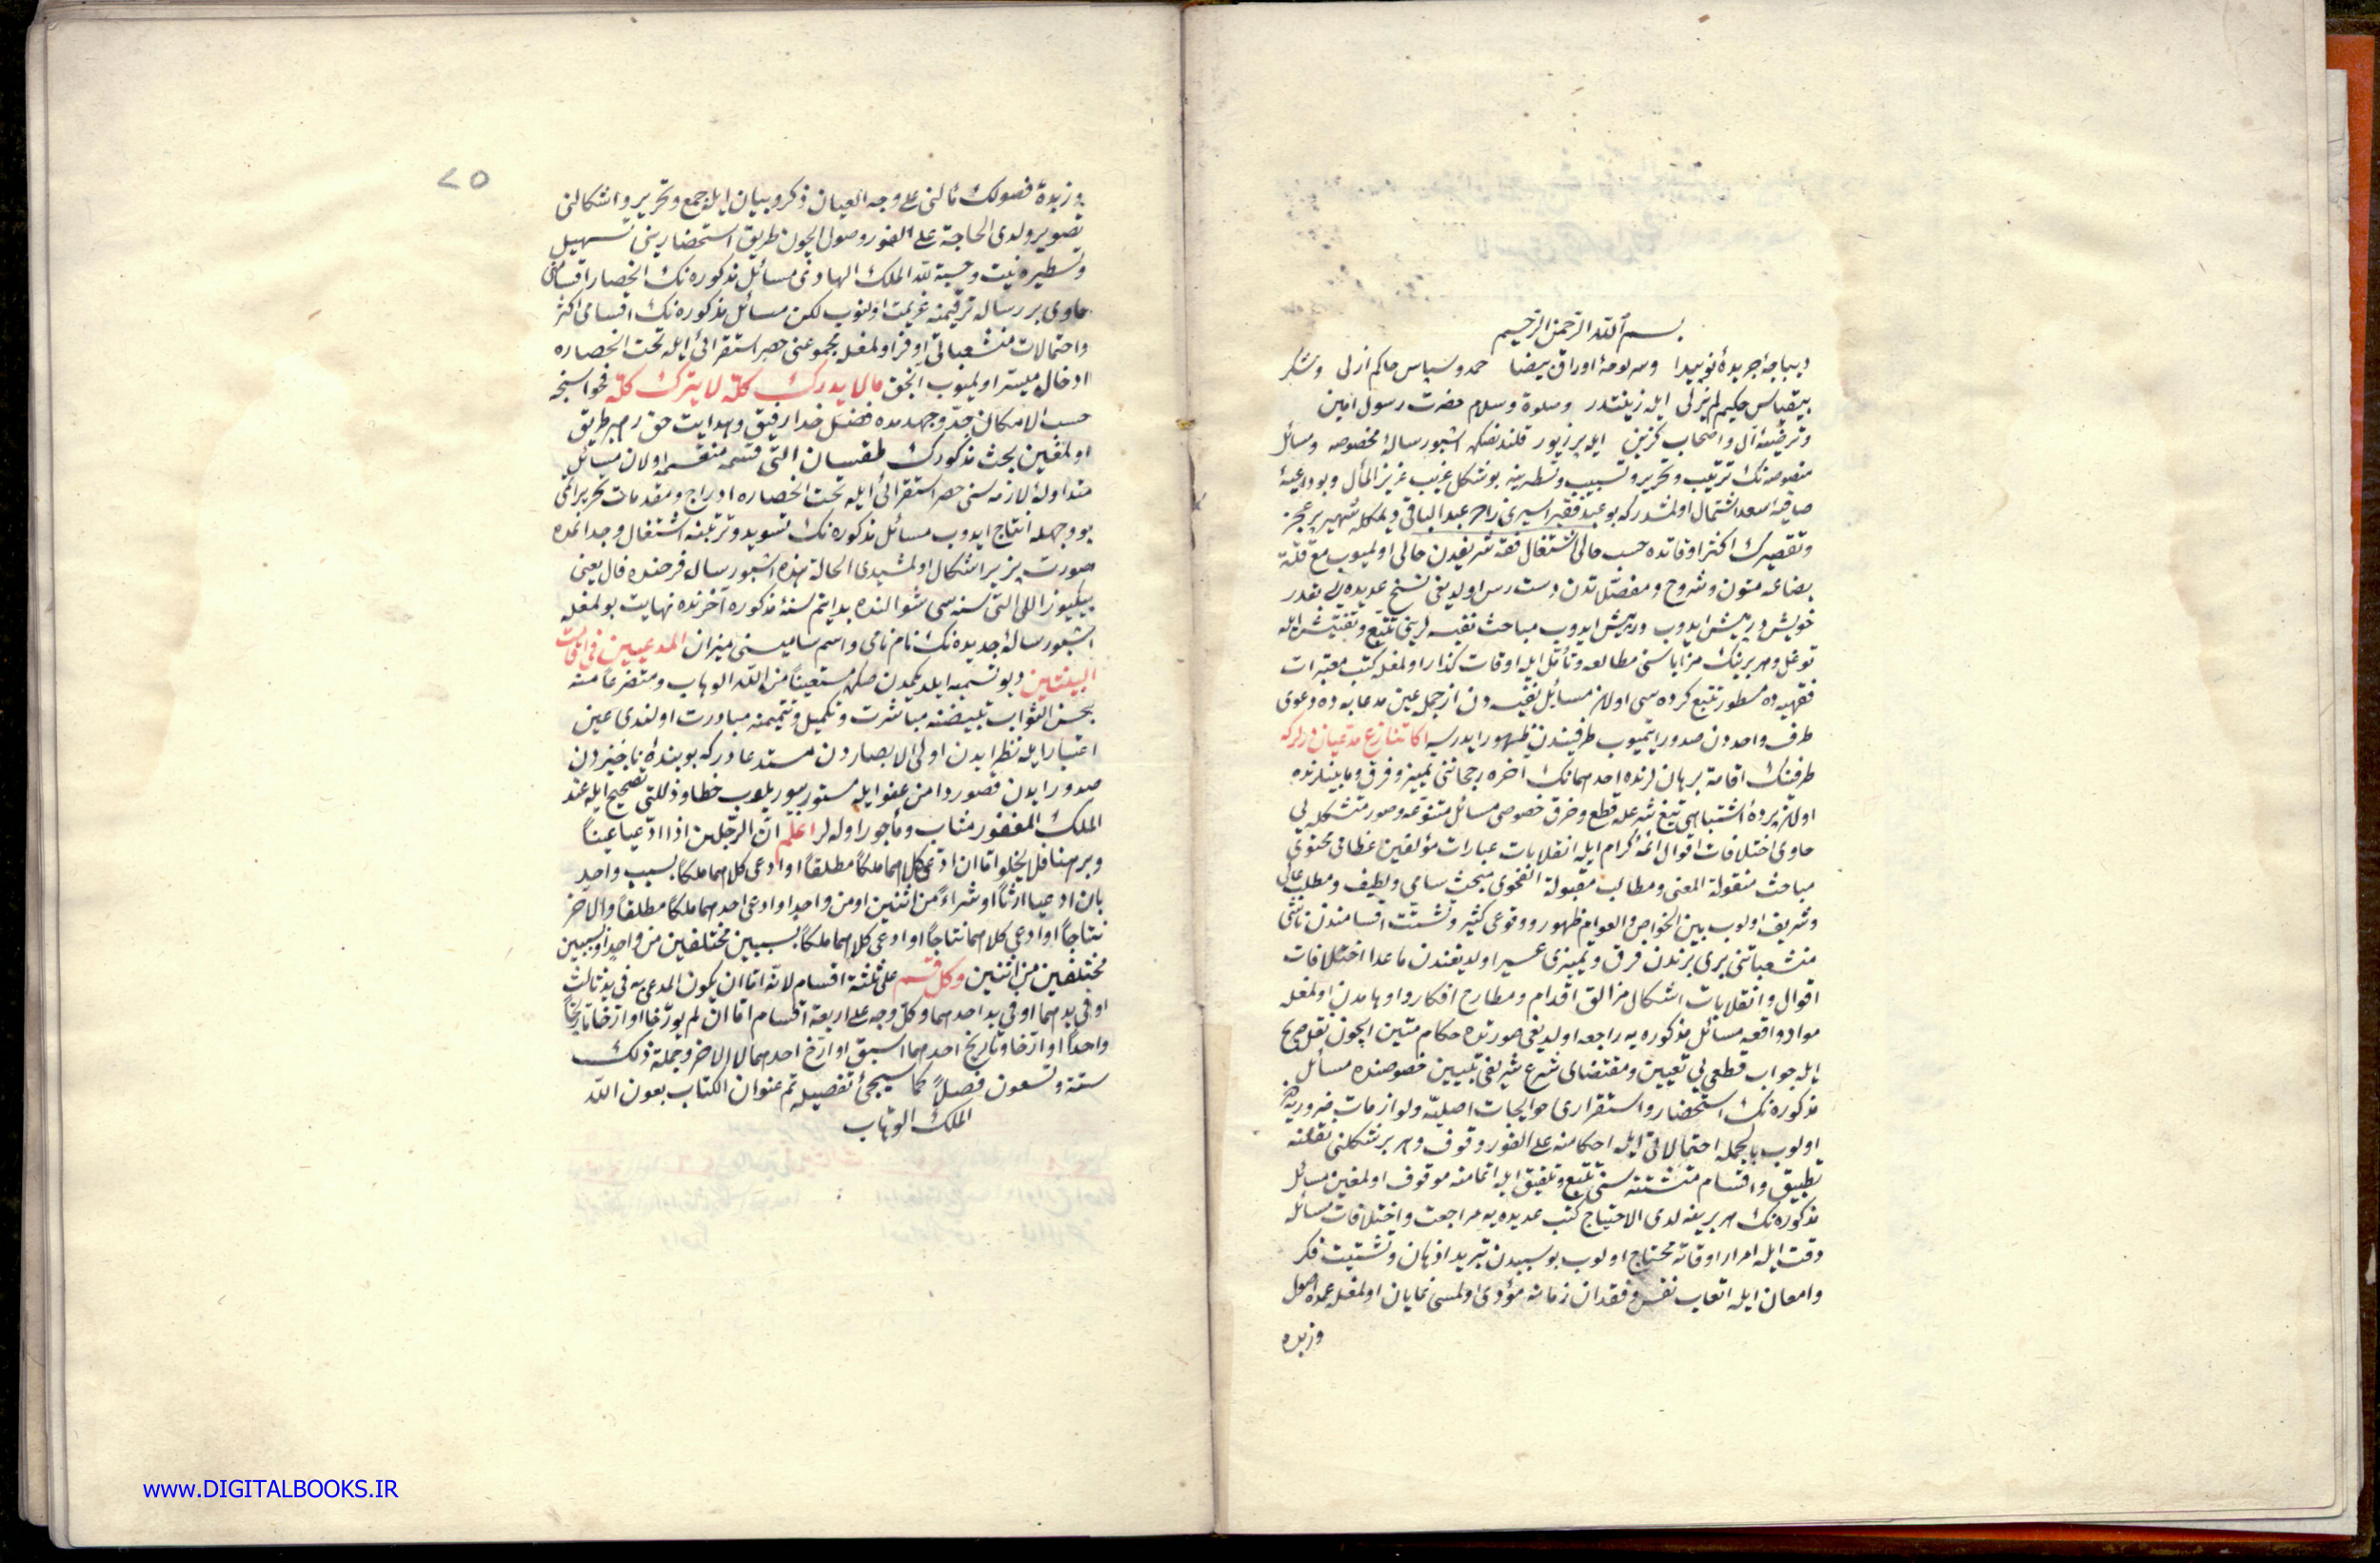 بسم الله الرحمن الرحيم
ديباجهٔ جريدهٔ نوپيدا وسرلوحهٔ اوراق بيضا حمد وسپاس حاكم ازلى وشكر
بيقياس حكيم لم يزلى ايله زينتدر وصلوة وسلام حضرت رسول امين
وترضيهٔ آل واصحاب كزين ايله پر زيور قلندقدنصكره اشبو رسالهٔ مخصوصه ومسائل
منصوصه نك ترتيب وتحرير وتسبيب وتسطيرينه بو شكل غريب عزيز المآل وبو داعيهٔ
صافيهٔ سعد اشتمال اولمشدركه بو عبد فقير اسيرى زاده عبد الباقى ديمكله شهير پر عجز
وتقصيرك اكثر اوقاتده حسب حالى اشتغال فقه شريفدن خالى اولميوب مع قلة
بضاعه متون وشروح ومفصلاتدن دست رس اولديغى نسخ عديده يى بقدر
خويش درپيش ايدوب ورپيش ايدوب مباحث نفيسه لرينى تتبع وتفتيش ايله
توغل وهر برينك مزاياسنى مطالعه وتأمل ايله اوقات كذار اولمغله كتب معتبرات
فقهيه ده مسطور تتبع كرده سى اولان مسائل نفيسه دن از جمله عين مدعابه ده دعوى
طرف واحددن صدور ايتميوب طرفيندن ظهور ايدرسه اكا تنازع مدعيان ديرلركه
طرفينك اقامهٔ برهانلرنده احدهمانك آخره رجحاننى تمييز وفرق ومابينلرنده
اولان پردهٔ اشتباهى تيغ شرعله قطع وخرق خصوصى مسائل متنوعه وصور متشكله يى
حاوى اختلافات اقوال ائمهٔ كرام ايله انقلابات عبارات مؤلفين عظامى محتوى
مباحث منقولة المعنى ومطالب مقبولة الفحوى مبحث سامى ولطيف ومطلب عالى
وشريف اولوب بين الخواص والعوام ظهور ووقوعى كثير وتشتت اقسامندن ناشى
منشعباتنى برى برندن فرق وتمييزى عسير اولديغندن ماعدا اختلافات
اقوال وانقلابات اشكال مزالق اقدام ومطارح افكار واوهامدن اولمغله
مواد واقعه مسائل مذكوره يه راجعه اولديغى صورتده حكام متين ايچون نقل صريح
ايله جواب قطعى يى تعيين ومقتضاى شرع شريفى تبيين خصوصنده مسائل
مذكوره نك استحضار واستقرارى حوايجات اصليه ولوازمات ضروريه دن
اولوب بالجمله احتمالاتى ايله احكامنه على الفور وقوف وهر بر شكلنى نقلنه
تطبيق واقسام متشتته سنى تتبع وتلفيق ايله اتمامنه موقوف اولمغين مسائل
مذكوره نك هر برينه لدى الاحتياج كتب عديده يه مراجعت واختلافات مسائله
دقت ايله امرار اوقاته محتاج اولوب بو سببدن تبريد اذهان وتشتيت فكر
وامعان ايله اتعاب نفس وفقدان زمانه مؤدى اولمسى نمايان اولمغله عمدهٔ اصول
وزبده
٢٥
وزبدهٔ فصولك مآلنى على وجه العيان ذكر وبيان ايله جمع وتحرير واشكالنى
تصوير ولدى الحاجة على الفور وصول ايچون طريق استحضارينى تسهيل
وتسطيره نيت وحسبة لله الملك الهادى مسائل مذكوره نك انحصار اقسامنى
حاوى بر رساله ترقيمنه عزيمت اولنوب لكن مسائل مذكوره نك اقسامى اكثر
واحتمالات منشعباتى اوفر اولمغله مجموعنى حصر استقرائى ايله تحت انحصاره
ادخال ميسر اولميوب انجق مالا يدرك كلّه لا يترك كلّه فحواسنجه
حسب الامكان جدّ وجهدمده فضل خدا رفيق وهدايت حق رهبر طريق
اولمغين بحث مذكورك طقسان التى قسمه منقسمه اولان مسائل
متداولهٔ لازمه سنى حصر استقرائى ايله تحت انحصاره ادراج ومقدمات تحريراتمى
بو وجهله انتاج ايدوب مسائل مذكوره نك تسويد وترتيبنه اشتغال وجداغده
صورت پزير اشكال اولمشيدى الحالة هذه اشبو رسال فرخنده فال يعنى
بيك يوز اللى التى سنه سى شوالنده بدأ تم سنهٔ مذكوره آخرنده نهايت بولمغله
اشبو رسالهٔ جديده نك نام نامى واسم ساميسنى ميزان المدعيين فى اقامت
البينتين ديو تسميه ايلديكمدن صكره مستعيناً من الله الوهاب ومتضرعاً منه
بحسن الثواب تبييضنه مباشرت وتكميل وتتميمنه مبادرت اولندى عين
اعتبار ايله نظر ايدن اولى الابصاردن مستدعادركه بو بندهٔ ناچيزدن
صدور ايدن قصور دامن عفو ايله مستور بيوريلوب خطا وذللتى تصحيح ايله عند
الملك الغفور مثاب ومأجور اوله لر اعلم انّ الرجلين اذا ادّعيا عيناً
وبرهنا فلا يخلوا امّا ان ادّعى كلاهما ملكاً مطلقاً او ادعى كلاهما ملكاً بسبب واحد
بان ادعيا ارثاً او شراءً من اثنين او من واحد او ادعى احدهما ملكاً مطلقاً والآخر
نتاجاً او ادعى كلاهما نتاجاً او ادعى كلاهما ملكاً بسببين مختلفين من واحد او بسببين
مختلفين من اثنين وكل قسم على ثلثة اقسام لانّه امّا ان يكون المدعى به فى يد ثالث
او فى يدهما او فى يد احدهما وكل وجه على اربعة اقسام امّا ان لم يورّخا او ارّخا تاريخاً
واحداً او ارّخا وتاريخ احدهما اسبق او ارّخ احدهما لا الآخر وجملة ذلك
ستة وتسعون فصلاً كما سيجئ تفصيله تم عنوان الكتاب بعون الله
الملك الوهاب
www.DIGITALBOOKS.IR